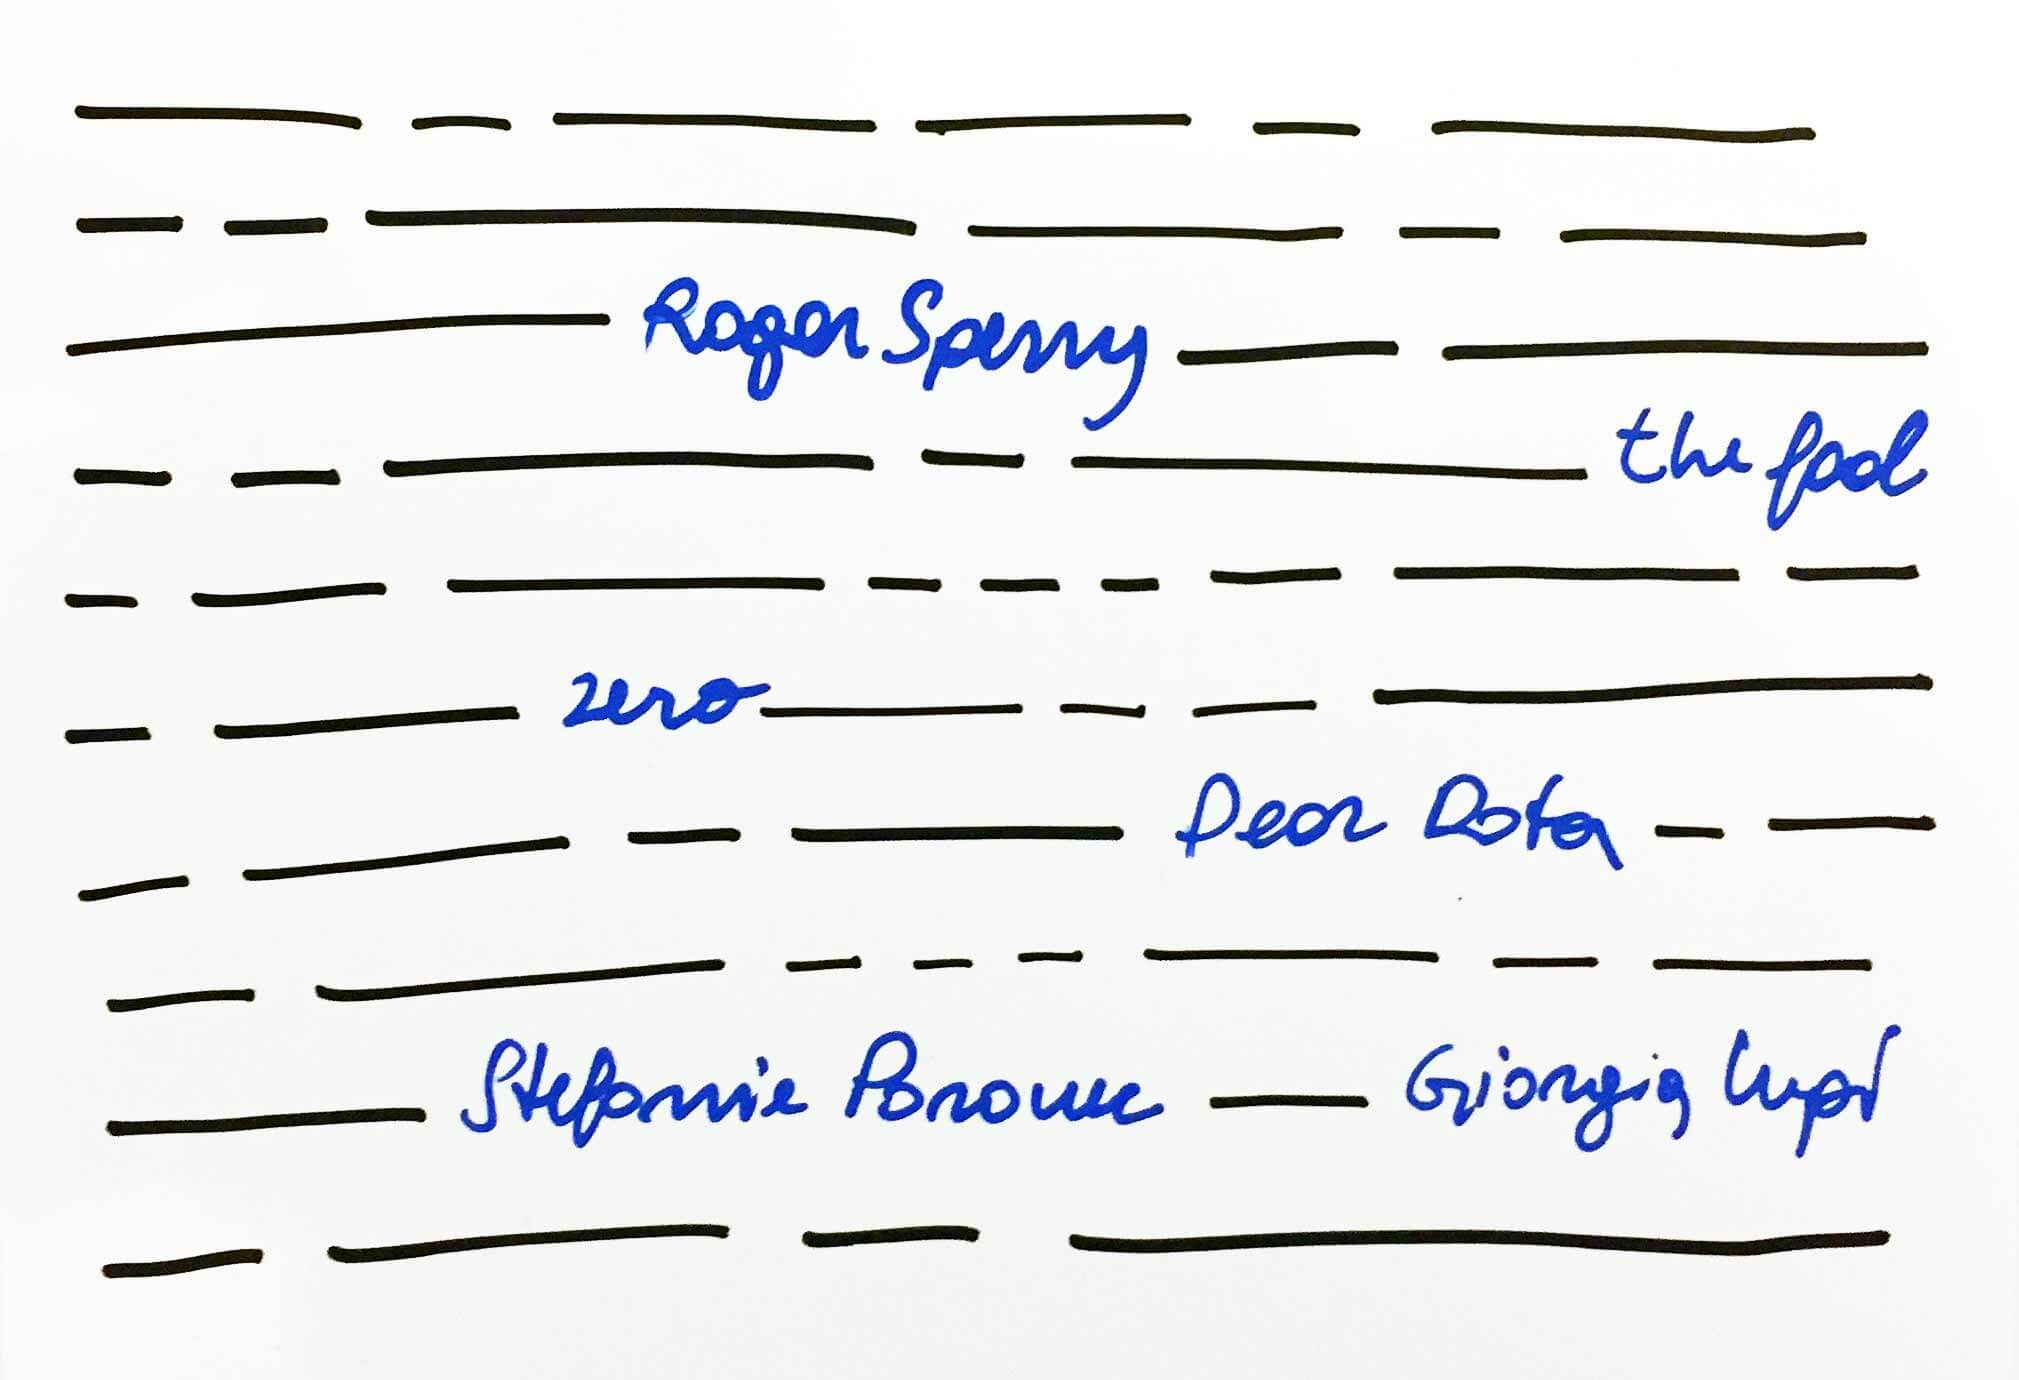 Roger Sperry
the fool
zero
Dear Data
Stefanie Posavec Giorgia Lupi